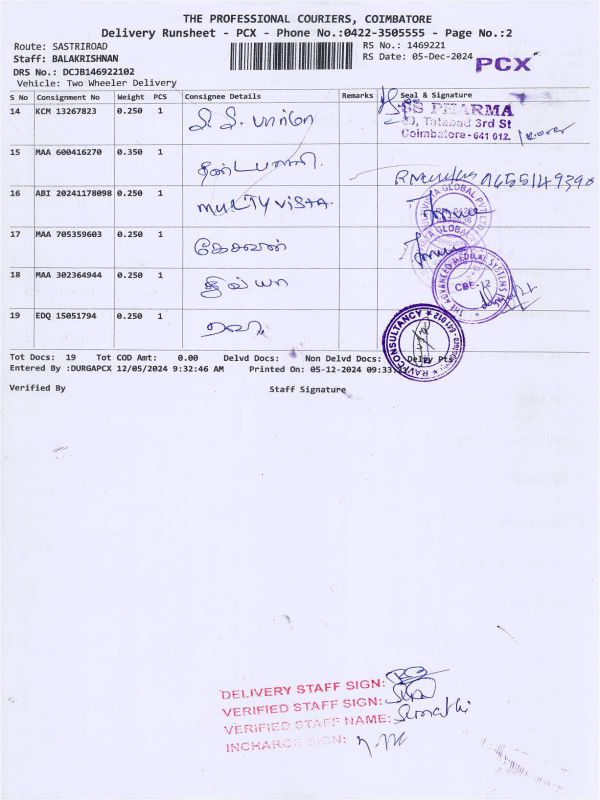 THE PROFESSIONAL COURIERS, COIMBATORE
Delivery Runsheet - PCX - Phone No.:0422-3505555 - Page No.:2
Route: SASTRIROAD RS No.: 1469221
Staff: BALAKRISHNAN RS Date: 05-Dec-2024 PCX
DRS No.: DCJB146922102
Vehicle: Two Wheeler Delivery
S No Consignment No Weight PCS Consignee Details Remarks Seal & Signature
14 KCM 13267823 0.250 1 PHARMA
Tatabad 3rd St
Coimbatore - 641 012.
15 MAA 600416270 0.350 1
16 ABI 20241178098 0.250 1 MULTY ViSTA.
17 MAA 705359603 0.250 1 கேசவன்
18 MAA 302364944 0.250 1 திவ்யா
THE ADVANCED MEDICAL SYSTEMS
CBE-12
19 EDQ 15051794 0.250 1 ரவி
RAVI CONSULTANCY
Tot Docs: 19 Tot COD Amt: 0.00 Delvd Docs: Non Delvd Docs: Delay Pts:
Entered By :DURGAPCX 12/05/2024 9:32:46 AM Printed On: 05-12-2024 09:33
Verified By Staff Signature
DELIVERY STAFF SIGN:
VERIFIED STAFF SIGN:
VERIFIED STAFF NAME: Sumathi
INCHARGE SIGN: